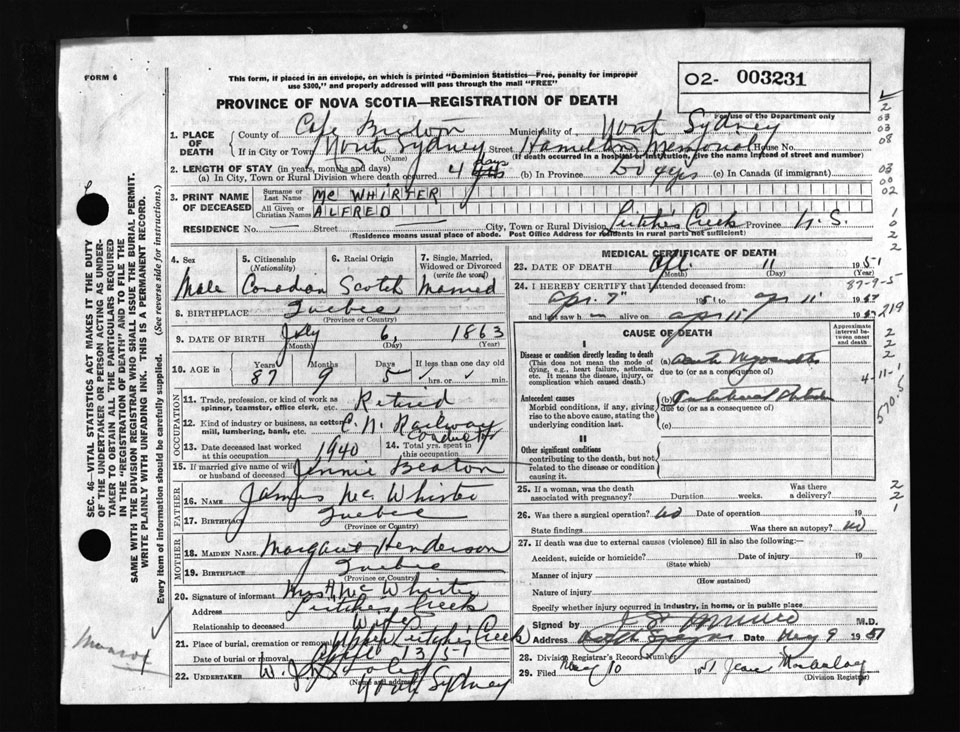 FORM 4
This form, if placed in an envelope, on which is printed "Dominion Statistics—Free, penalty for improper
use $300," and properly addressed will pass through the mail "FREE"
O2- 003231
For use of the Department only
PROVINCE OF NOVA SCOTIA—REGISTRATION OF DEATH
1. PLACE OF DEATH County of Cape Breton Municipality of North Sydney
If in City or Town North Sydney Street Hamilton Memorial House No.
(Name) (If death occurred in a hospital or institution, give the name instead of street and number)
2. LENGTH OF STAY (in years, months and days)
(a) In City, Town or Rural Division where death occurred 4 days (b) In Province 60 yrs (c) In Canada (if immigrant)
3. PRINT NAME OF DECEASED Surname or Last Name MC WHIRTER
All Given or Christian Names ALFRED
RESIDENCE No. — Street — City, Town or Rural Division Leitches Creek Province N.S.
(Residence means usual place of abode. Post Office Address for residents in rural parts not sufficient)
4. Sex Male
5. Citizenship (Nationality) Canadian
6. Racial Origin Scotch
7. Single, Married, Widowed or Divorced (write the word) Married
8. BIRTHPLACE Quebec
(Province or Country)
9. DATE OF BIRTH July 6, 1863
(Month) (Day) (Year)
10. AGE in Years 87 Months 9 Days 5 If less than one day old hrs. or min.
OCCUPATION
11. Trade, profession, or kind of work as spinner, teamster, office clerk, etc. Retired
12. Kind of industry or business, as cotton mill, lumbering, bank, etc. C. N. Railway Conductor
13. Date deceased last worked at this occupation 1940
14. Total yrs. spent in this occupation
15. If married give name of wife or husband of deceased Jennie Beaton
FATHER
16. NAME James Mc Whirter
17. BIRTHPLACE Quebec
(Province or Country)
MOTHER
18. MAIDEN NAME Margaret Henderson
19. BIRTHPLACE Quebec
(Province or Country)
20. Signature of informant Mrs A Mc Whirter
Address Leitches Creek
Relationship to deceased Wife
21. Place of burial, cremation or removal Upper Leitches Creek
Date of burial or removal April 13/51
22. UNDERTAKER W. J.
North Sydney
(Name and address)
MEDICAL CERTIFICATE OF DEATH
23. DATE OF DEATH Apr. 11 1951
(Month) (Day) (Year)
87-9-5
24. I HEREBY CERTIFY that I attended deceased from
Apr. 7" 1951 to Apr 11" 1951
and last saw h alive on April 11" 1951
CAUSE OF DEATH
Approximate interval between onset and death
I
Disease or condition directly leading to death (a) Acute Myocarditis
(This does not mean the mode of dying, e.g., heart failure, asthenia, etc. It means the disease, injury, or complication which caused death.)
due to (or as a consequence of)
Antecedent causes (b)
Morbid conditions, if any, giving rise to the above cause, stating the underlying condition last.
due to (or as a consequence of)
(c)
4-11-1
570.5
II
Other significant conditions
contributing to the death, but not related to the disease or condition causing it.
25. If a woman, was the death associated with pregnancy? Duration weeks. Was there a delivery?
26. Was there a surgical operation? no Date of operation 19
State findings Was there an autopsy? no
27. If death was due to external causes (violence) fill in also the following:—
Accident, suicide or homicide? Date of injury 19
(State which)
Manner of injury
(How sustained)
Nature of injury
Specify whether injury occurred in industry, in home, or in public place
Signed by M.D.
Address North Sydney Date May 9 1951
28. Division Registrar's Record Number
29. Filed May 10 1951 Jean
(Division Registrar)
SEC. 46—VITAL STATISTICS ACT MAKES IT THE DUTY
OF THE UNDERTAKER OR PERSON ACTING AS UNDER-
TAKER TO OBTAIN ALL THE PARTICULARS REQUIRED
IN THE "REGISTRATION OF DEATH" AND TO FILE THE
SAME WITH THE DIVISION REGISTRAR WHO SHALL ISSUE THE BURIAL PERMIT.
WRITE PLAINLY WITH UNFADING INK. THIS IS A PERMANENT RECORD.
Every item of information should be carefully supplied. (See reverse side for instructions.)